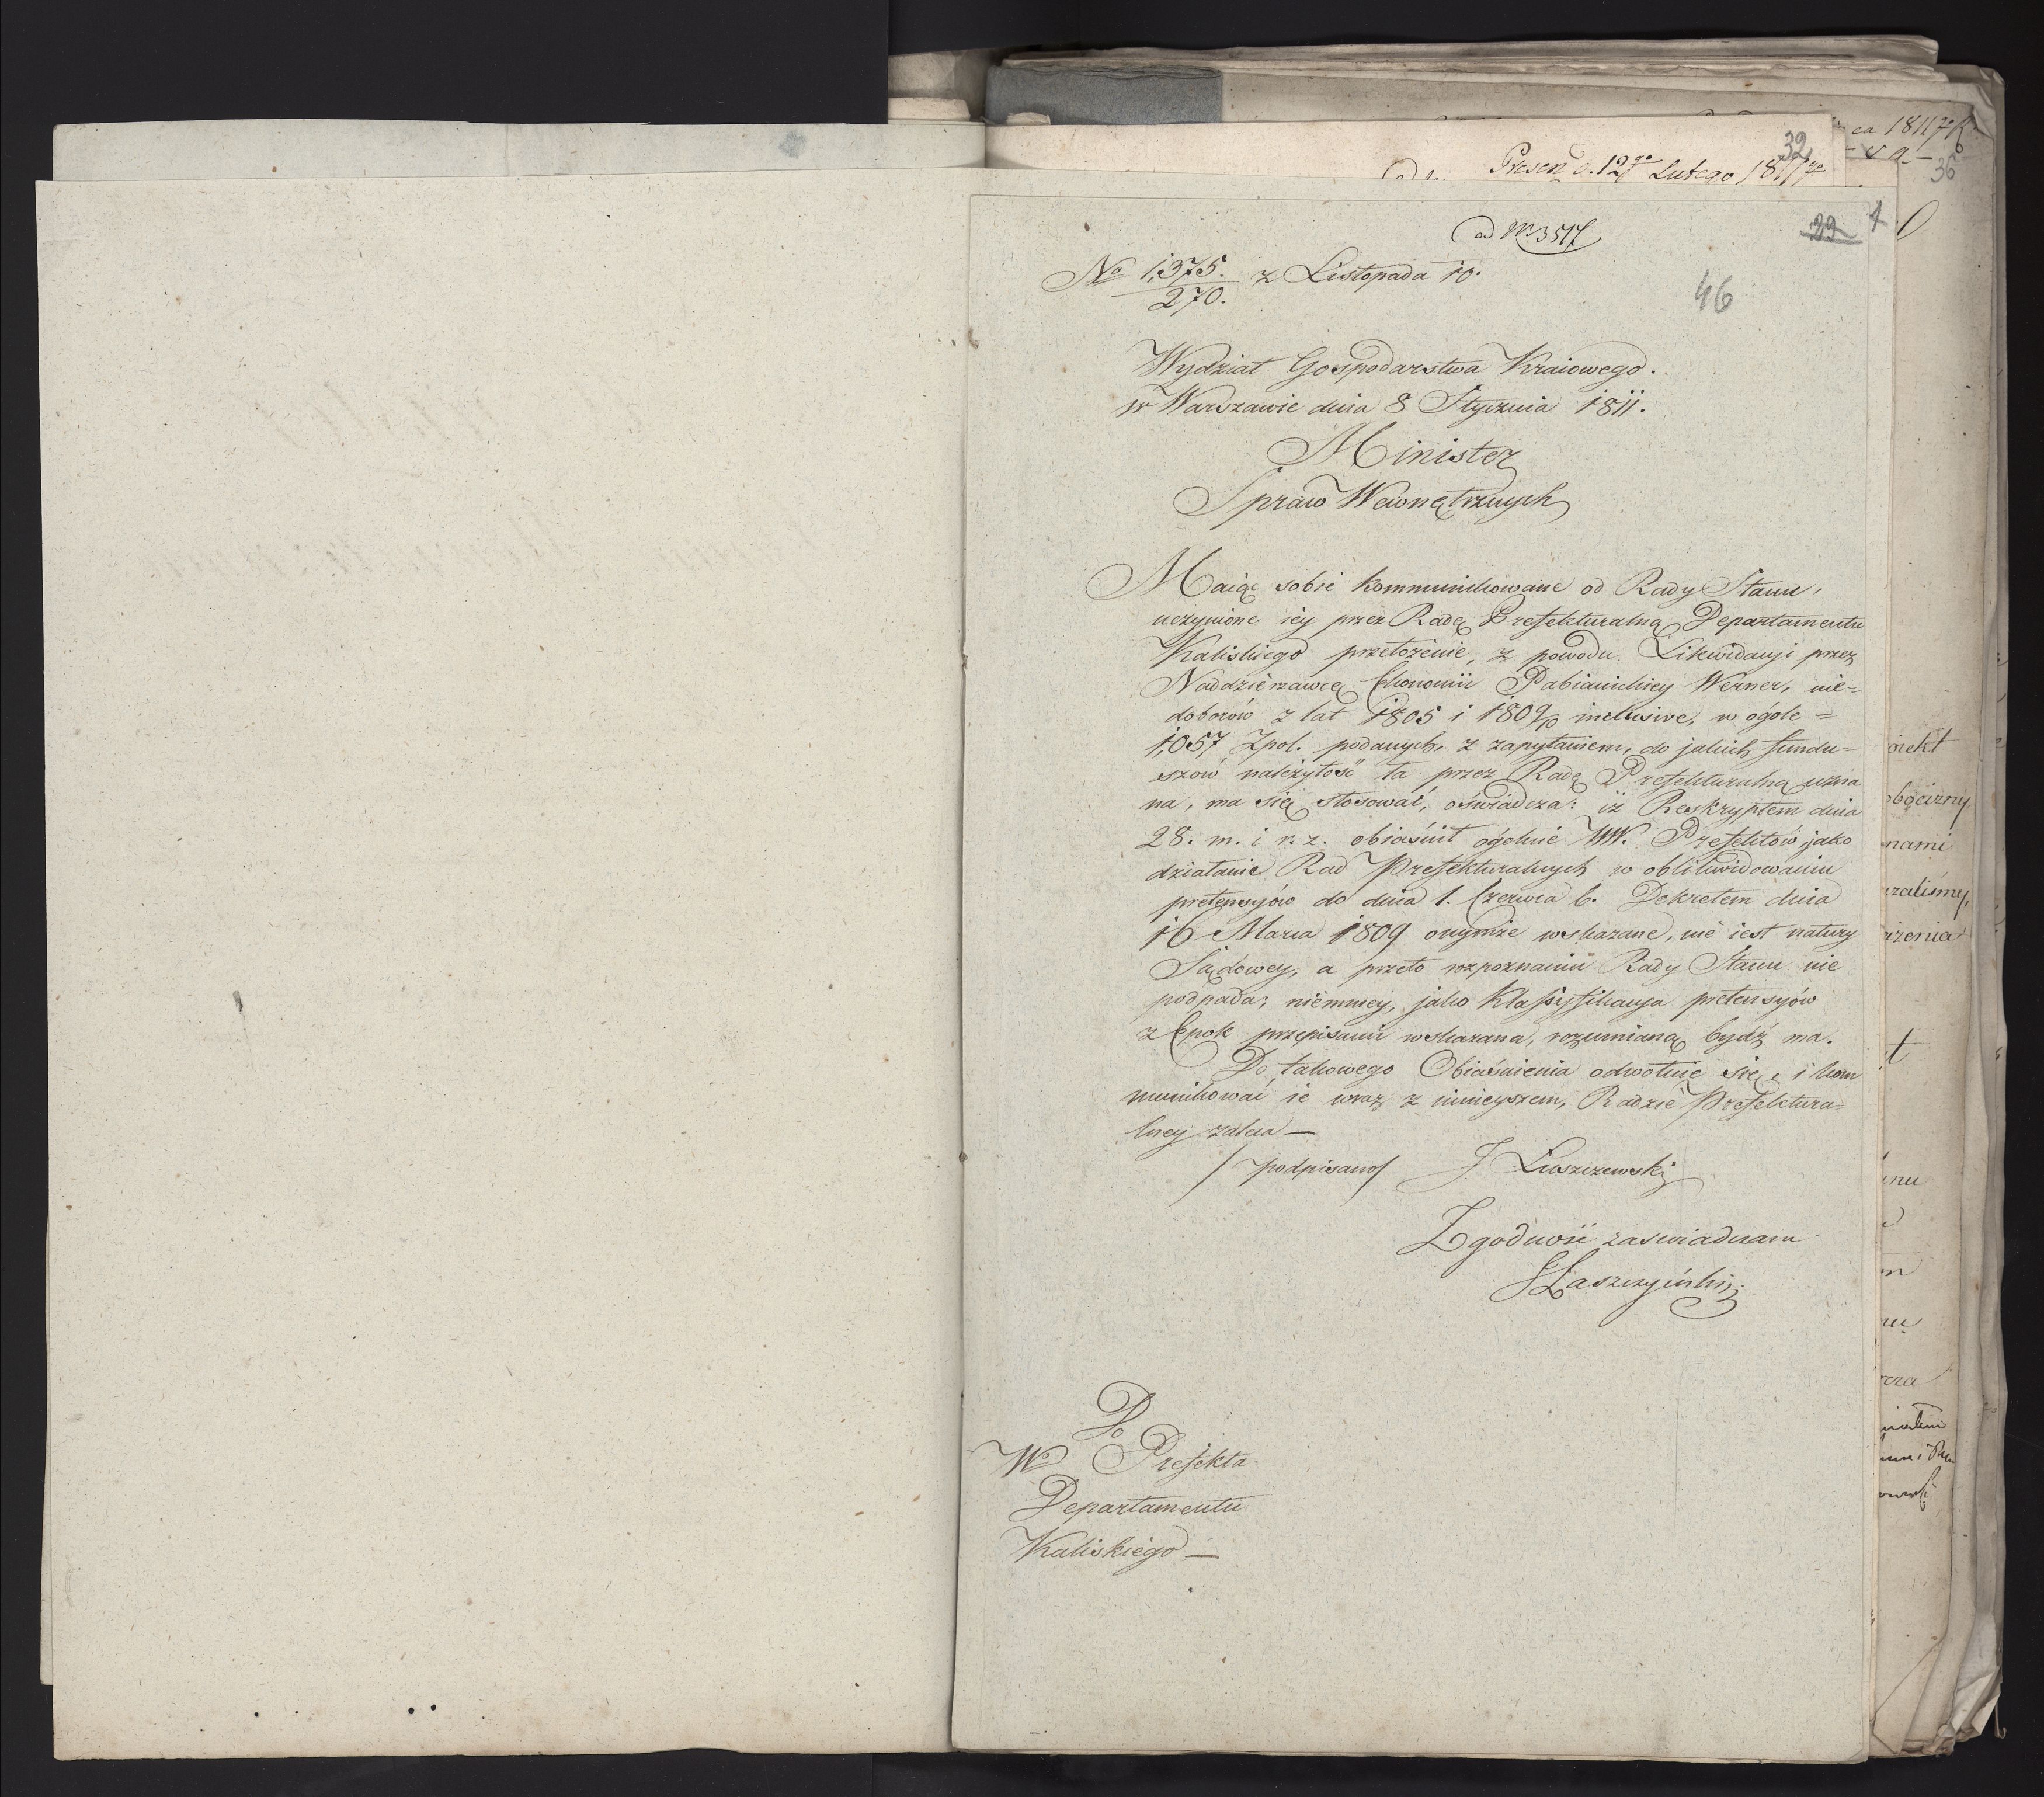 ca 1811 r
36
32
Presen d. 12go Lutego 1811go
29
1
ad No 3517
No 1,375. z Listopada 10.
270.
46
Wydział Gospodarstwa Kraiowego.
w Warszawie dnia 8 Stycznia 1811.
Minister
Spraw Wewnętrznych
Maiąc sobie kommunikowane od Rady Stanu,
uczynione iey przez Radę Prefekturalną Departamentu
Kaliskiego przełożenie, z powodu Likwidacyi przez
Naddzierzawcę Ekonomii Pabianickiey Werner, nie=
doborów z lat 1805 i 1809/10 inclusive, w ogóle =
1,057 Zpol. podanych, z zapytaniem, do jakich fundu=
szów należytość ta przez Radę Prefekturalną uzna
na, ma się stosować, oświadcza: iż Reskryptem dnia
28. m. i r. z. obiaśnił ogólnie WW. Prefektów jako
działanie Rad Prefekturalnych w oblikwidowaniu
pretensyów do dnia 1. Czerwca b. Dekretem dnia
16 Marca 1809 onymże wskazane, nie iest natury
Sądowey, a przeto rozpoznaniu Rady Stanu nie
podpada; niemniey, jako Klassyfikacya pretensyów
z Epok przepisami wskazana, rozumianą bydź ma.
Do takowego Obiaśnienia odwołuie się, i kom
munikować ie wraz z ninieyszem, Radzie Prefektura=
lney zaleca —
/podpisano/ J Łuszczewski
Zgodność zaswiadczam
Laszczyński
Do
W Prefekta
Departamentu
Kaliskiego —
nami
zaliśmy,
nu